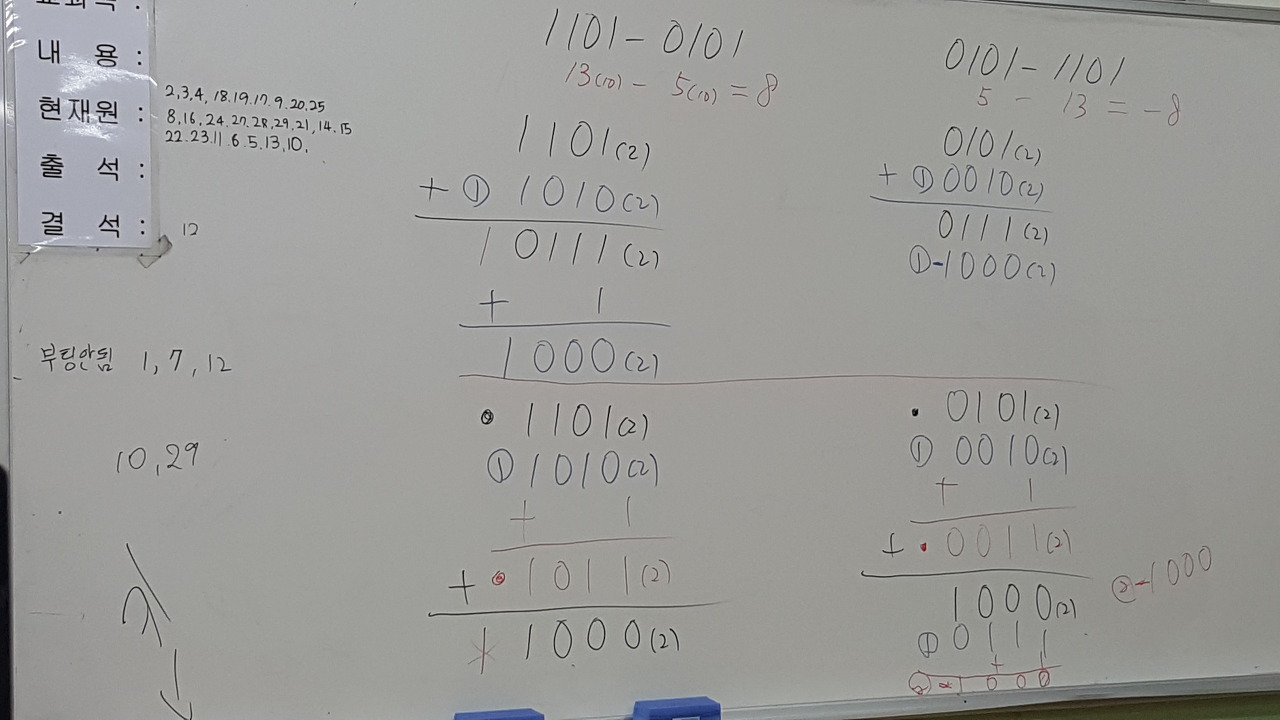 내 용 :
현재원 :
출 석 :
결 석 :
2,3,4, 18.19.17.9.20.25
8,16,24.27.28,29,21,14.15
22.23.11.6.5.13,10,
12
부팅안됨 1,7,12
10,29
1101-0101
13(10) - 5(10) = 8
1101(2)
+ ① 1010(2)
10111(2)
+ 1
1000(2)
1101(2)
① 1010(2)
+ 1
+ 1011(2)
1 1000(2)
0101-1101
5 - 13 = -8
0101(2)
+ ① 0010(2)
0111(2)
①-1000(2)
0101(2)
① 0010(2)
+ 1
+ 0011(2)
1000(2)
② -1000
① 0111
+ 1
② -1000